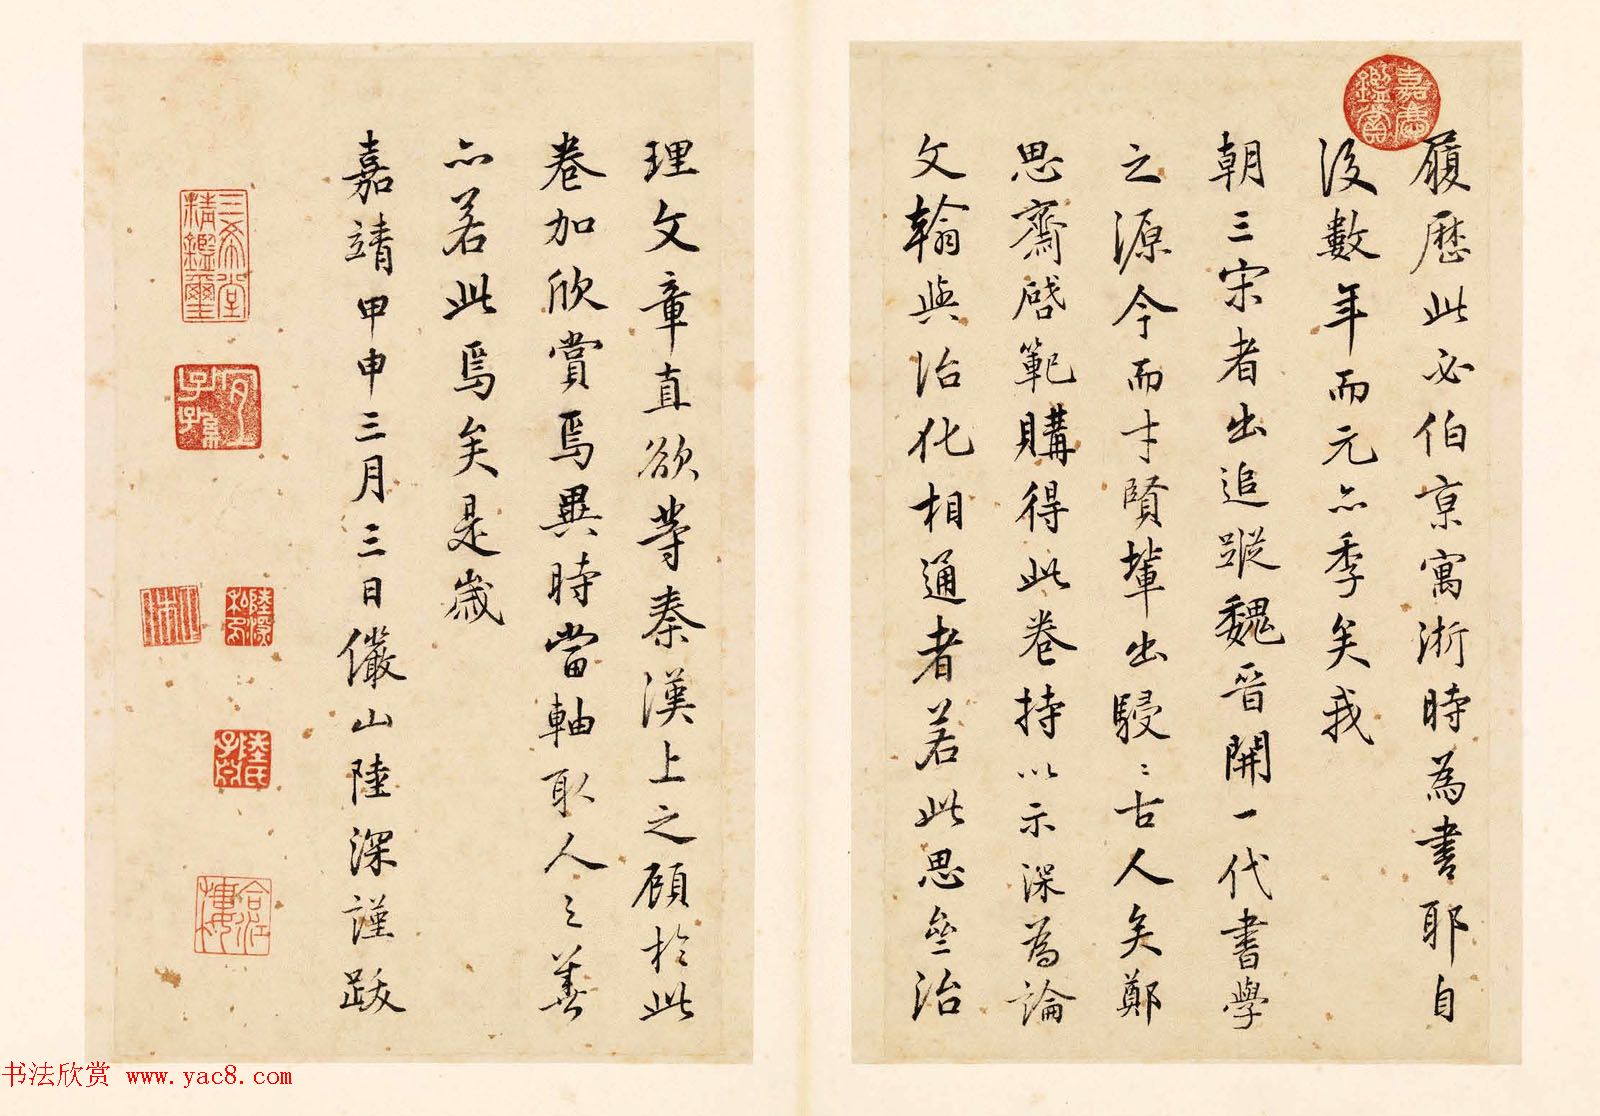 履歷此必伯京寓浙時為書耶自
後數年而元亦季矣我
朝三宋者出追蹤魏晉開一代書學
之源今而才賢輩出駸〻古人矣鄭
思齋啓範購得此卷持以示深為論
文翰與治化相通者若此思齋治
理文章直欲等秦漢上之顧於此
卷加欣賞焉異時當軸取人之善
亦若此焉矣是歲
嘉靖甲申三月三日儼山陸深謹跋
嘉慶鑑賞
三希堂精鑑璽
宜子孫
陸氏子淵
书法欣赏 www.yac8.com